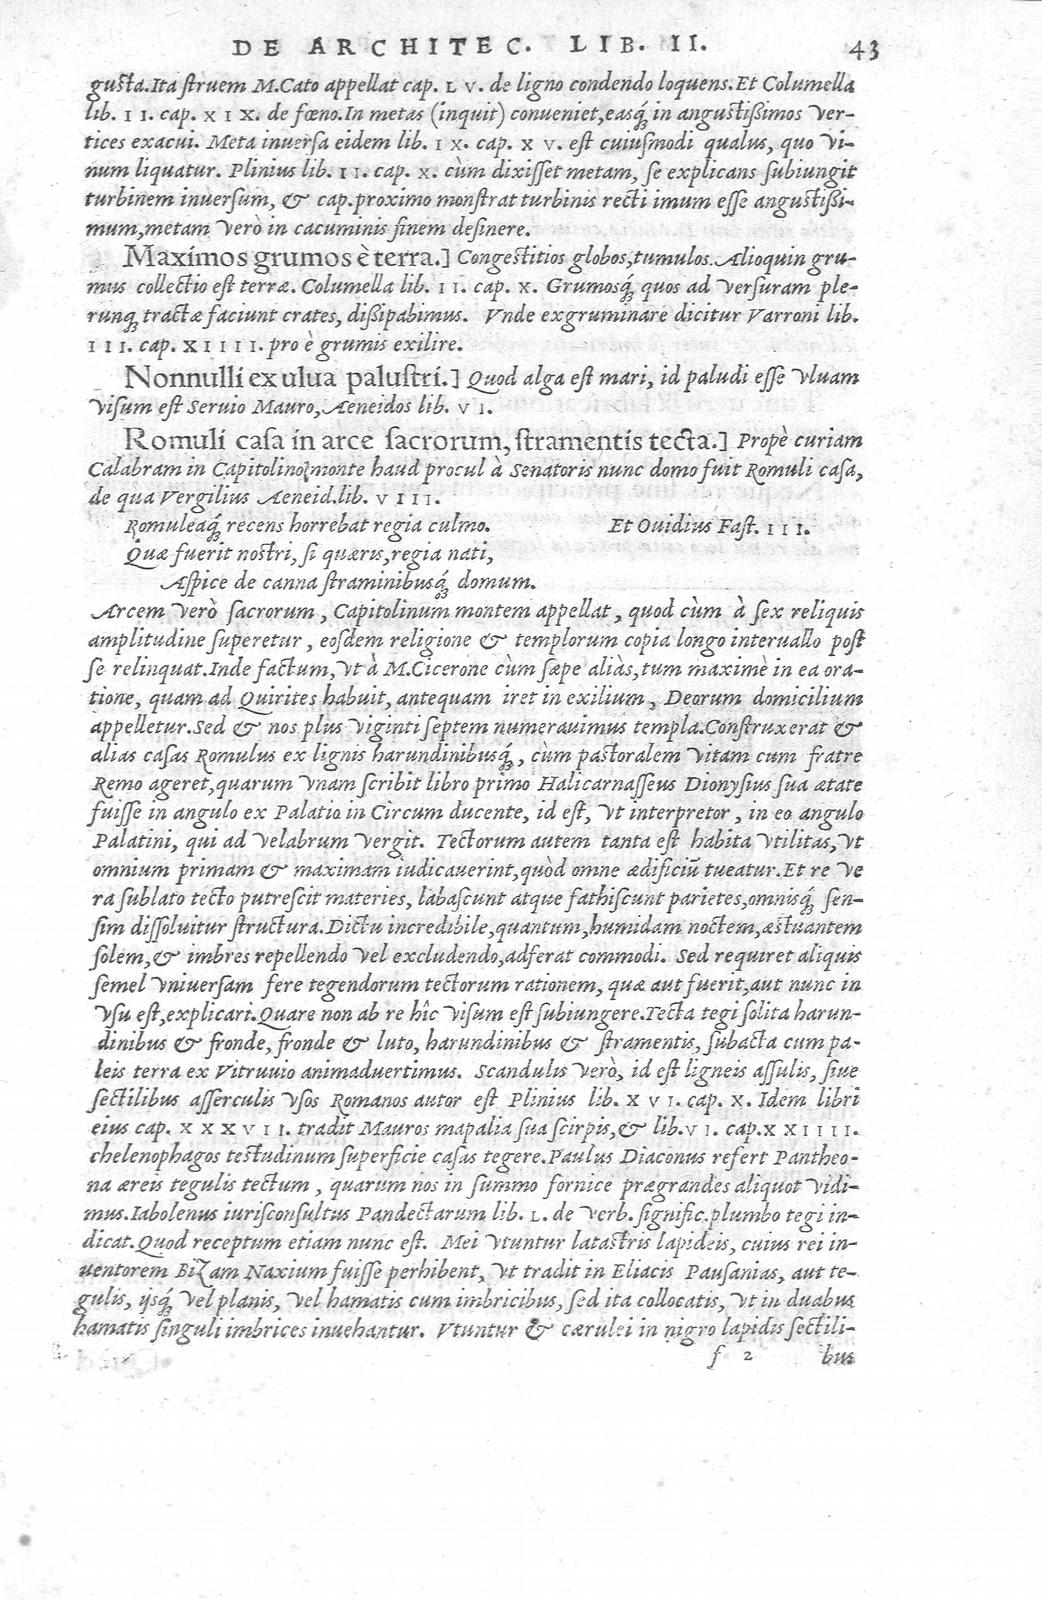 DE ARCHITEC. LIB. II. 43
gusta. Ita struem M. Cato appellat cap. LV. de ligno condendo loquens. Et Columella
lib. II. cap. XIX. de fœno. In metas (inquit) conueniet, easq́; in angustißimos ver-
tices exacui. Meta inuersa eidem lib. IX. cap. XV. est cuiusmodi qualus, quo vi-
num liquatur. Plinius lib. II. cap. X. cùm dixisset metam, se explicans subiungit
turbinem inuersum, & cap. proximo monstrat turbinis recti imum esse angustißi-
mum, metam verò in cacuminis finem desinere.
Maximos grumos è terra.] Congestitios globos, tumulos. Alioquin gru-
mus collectio est terræ. Columella lib. II. cap. X. Grumosq́; quos ad versuram ple-
runq; tractæ faciunt crates, dißipabimus. Vnde exgruminare dicitur Varroni lib.
III. cap. XIIII. pro è grumis exilire.
Nonnulli ex ulua palustri.] Quod alga est mari, id paludi esse vluam
visum est Seruio Mauro, Aeneidos lib. VI.
Romuli casa in arce sacrorum, stramentis tecta.] Propè curiam
Calabram in Capitolino monte haud procul à Senatoris nunc domo fuit Romuli casa,
de qua Vergilius Aeneid. lib. VIII.
Romuleaq́; recens horrebat regia culmo. Et Ouidius Fast. III.
Quæ fuerit nostri, si quæris, regia nati,
Aspice de canna straminibusq́; domum.
Arcem verò sacrorum, Capitolinum montem appellat, quod cùm à sex reliquis
amplitudine superetur, eosdem religione & templorum copia longo interuallo post
se relinquat. Inde factum, vt à M. Cicerone cùm sæpe aliàs, tum maximè in ea ora-
tione, quam ad Quirites habuit, antequam iret in exilium, Deorum domicilium
appelletur. Sed & nos plus viginti septem numerauimus templa. Construxerat &
alias casas Romulus ex lignis harundinibusq́;, cùm pastoralem vitam cum fratre
Remo ageret, quarum vnam scribit libro primo Halicarnasseus Dionysius sua ætate
fuisse in angulo ex Palatio in Circum ducente, id est, vt interpretor, in eo angulo
Palatini, qui ad velabrum vergit. Tectorum autem tanta est habita vtilitas, vt
omnium primam & maximam iudicauerint, quòd omne ædificiũ tueatur. Et re ve
ra sublato tecto putrescit materies, labascunt atque fathiscunt parietes, omnisq́; sen-
sim dissoluitur structura. Dictu incredibile, quantum, humidam noctem, æstuantem
solem, & imbres repellendo vel excludendo, adferat commodi. Sed requiret aliquis
semel vniuersam fere tegendorum tectorum rationem, quæ aut fuerit, aut nunc in
vsu est, explicari. Quare non ab re hîc visum est subiungere. Tecta tegi solita harun-
dinibus & fronde, fronde & luto, harundinibus & stramentis, subacta cum pa-
leis terra ex Vitruuio animaduertimus. Scandulis verò, id est ligneis assulis, siue
sectilibus asserculis vsos Romanos autor est Plinius lib. XVI. cap. X. Idem libri
eius cap. XXXVII. tradit Mauros mapalia sua scirpis, & lib. VI. cap. XXIIII.
chelenophagos testudinum superficie casas tegere. Paulus Diaconus refert Pantheo-
na æreis tegulis tectum, quarum nos in summo fornice prægrandes aliquot vidi-
mus. Iabolenus iurisconsultus Pandectarum lib. L. de verb. signific. plumbo tegi in-
dicat. Quod receptum etiam nunc est. Mei vtuntur latastris lapideis, cuius rei in-
uentorem Bizam Naxium fuisse perhibent, vt tradit in Eliacis Pausanias, aut te-
gulis, ijsq́; vel planis, vel hamatis cum imbricibus, sed ita collocatis, vt in duabus
hamatis singuli imbrices inuehantur. Vtuntur & cærulei in nigro lapidis sectili-
f 2 bus